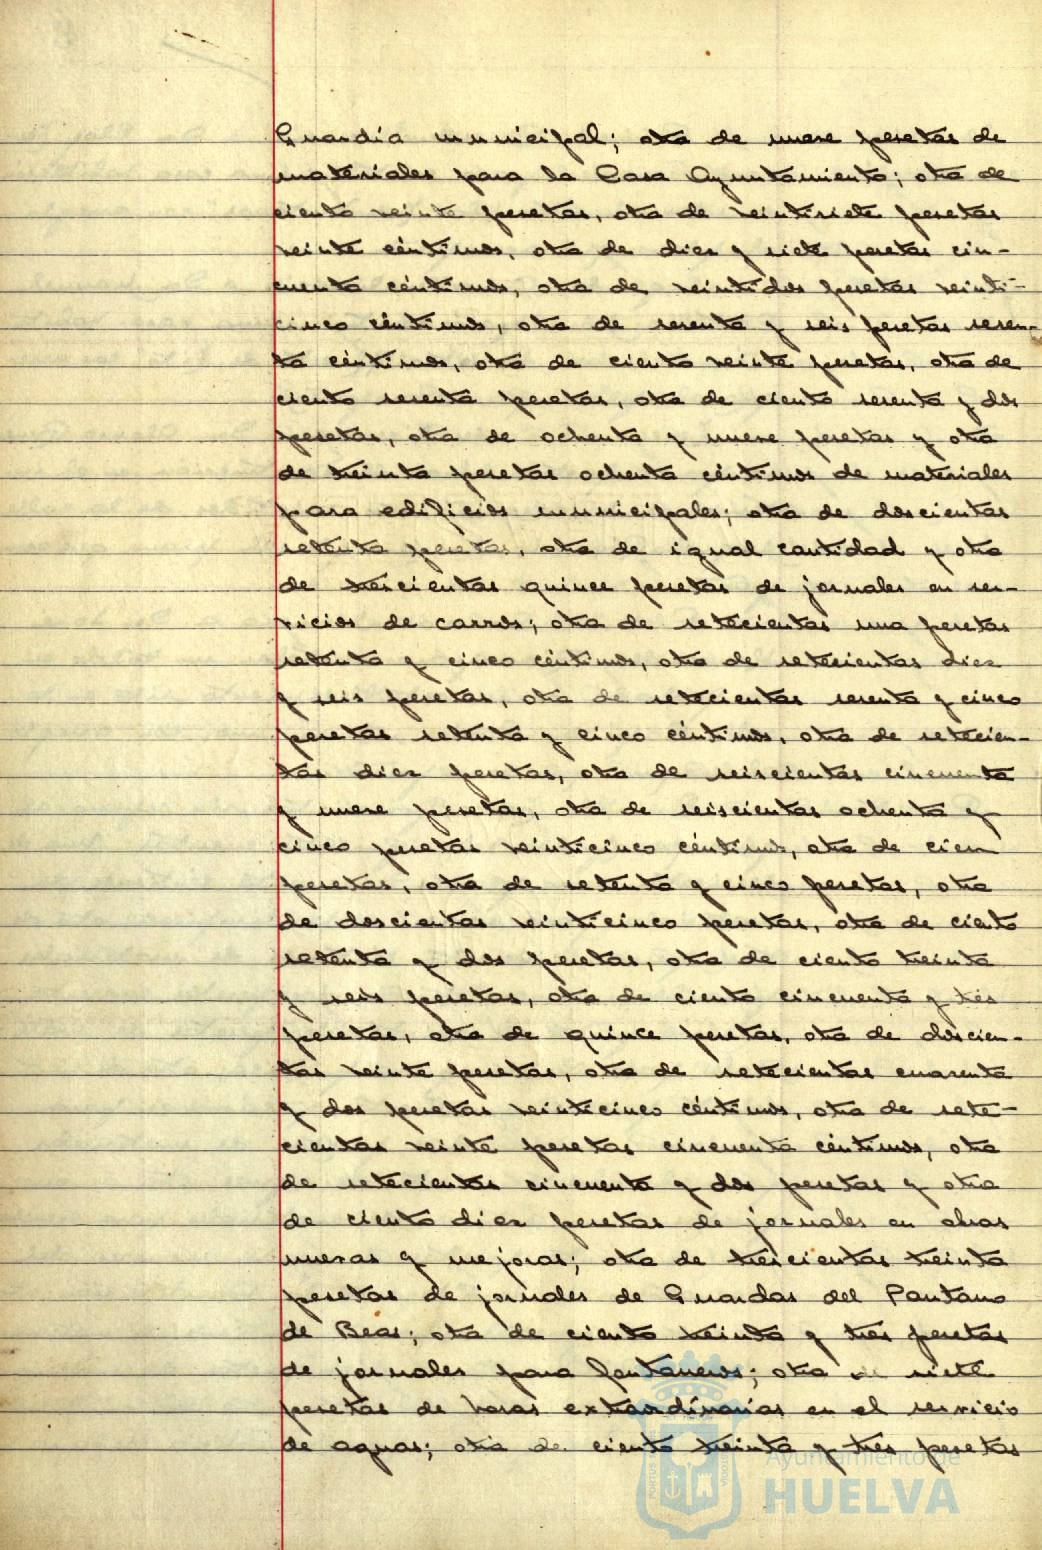 Guardia municipal; otra de nueve pesetas de
materiales para la Casa Ayuntamiento; otra de
ciento veinte pesetas, otra de veintisiete pesetas
veinte céntimos, otra de diez y siete pesetas cin-
cuenta céntimos, otra de veintidos pesetas veinti-
cinco céntimos, otra de sesenta y seis pesetas sesen-
ta céntimos, otra de ciento veinte pesetas, otra de
ciento sesenta pesetas, otra de ciento sesenta y dos
pesetas, otra de ochenta y nueve pesetas y otra
de treinta pesetas ochenta céntimos de materiales
para edificios municipales; otra de doscientas
setenta pesetas, otra de igual cantidad y otra
de trescientas quince pesetas de jornales en ser-
vicios de carros; otra de setecientas una pesetas
setenta y cinco céntimos, otra de setecientas diez
y seis pesetas, otra de setecientas sesenta y cinco
pesetas setenta y cinco céntimos, otra de setecien-
tas diez pesetas, otra de seiscientas cincuenta
y nueve pesetas, otra de seiscientas ochenta y
cinco pesetas veinticinco céntimos, otra de cien
pesetas, otra de setenta y cinco pesetas, otra
de doscientas veinticinco pesetas, otra de ciento
setenta y dos pesetas, otra de ciento treinta
y seis pesetas, otra de ciento cincuenta y tres
pesetas, otra de quince pesetas, otra de doscien-
tas veinte pesetas, otra de setecientas cuarenta
y dos pesetas veinticinco céntimos, otra de sete-
cientas veinte pesetas cincuenta céntimos, otra
de setecientas cincuenta y dos pesetas y otra
de ciento diez pesetas de jornales en obras
nuevas y mejoras; otra de trescientas treinta
pesetas de jornales de Guardas del Pantano
de Beas; otra de ciento treinta y tres pesetas
de jornales para fontaneros; otra de siete
pesetas de horas extraordinarias en el servicio
de aguas; otra de ciento treinta y tres pesetas
Ayuntamiento de
HUELVA